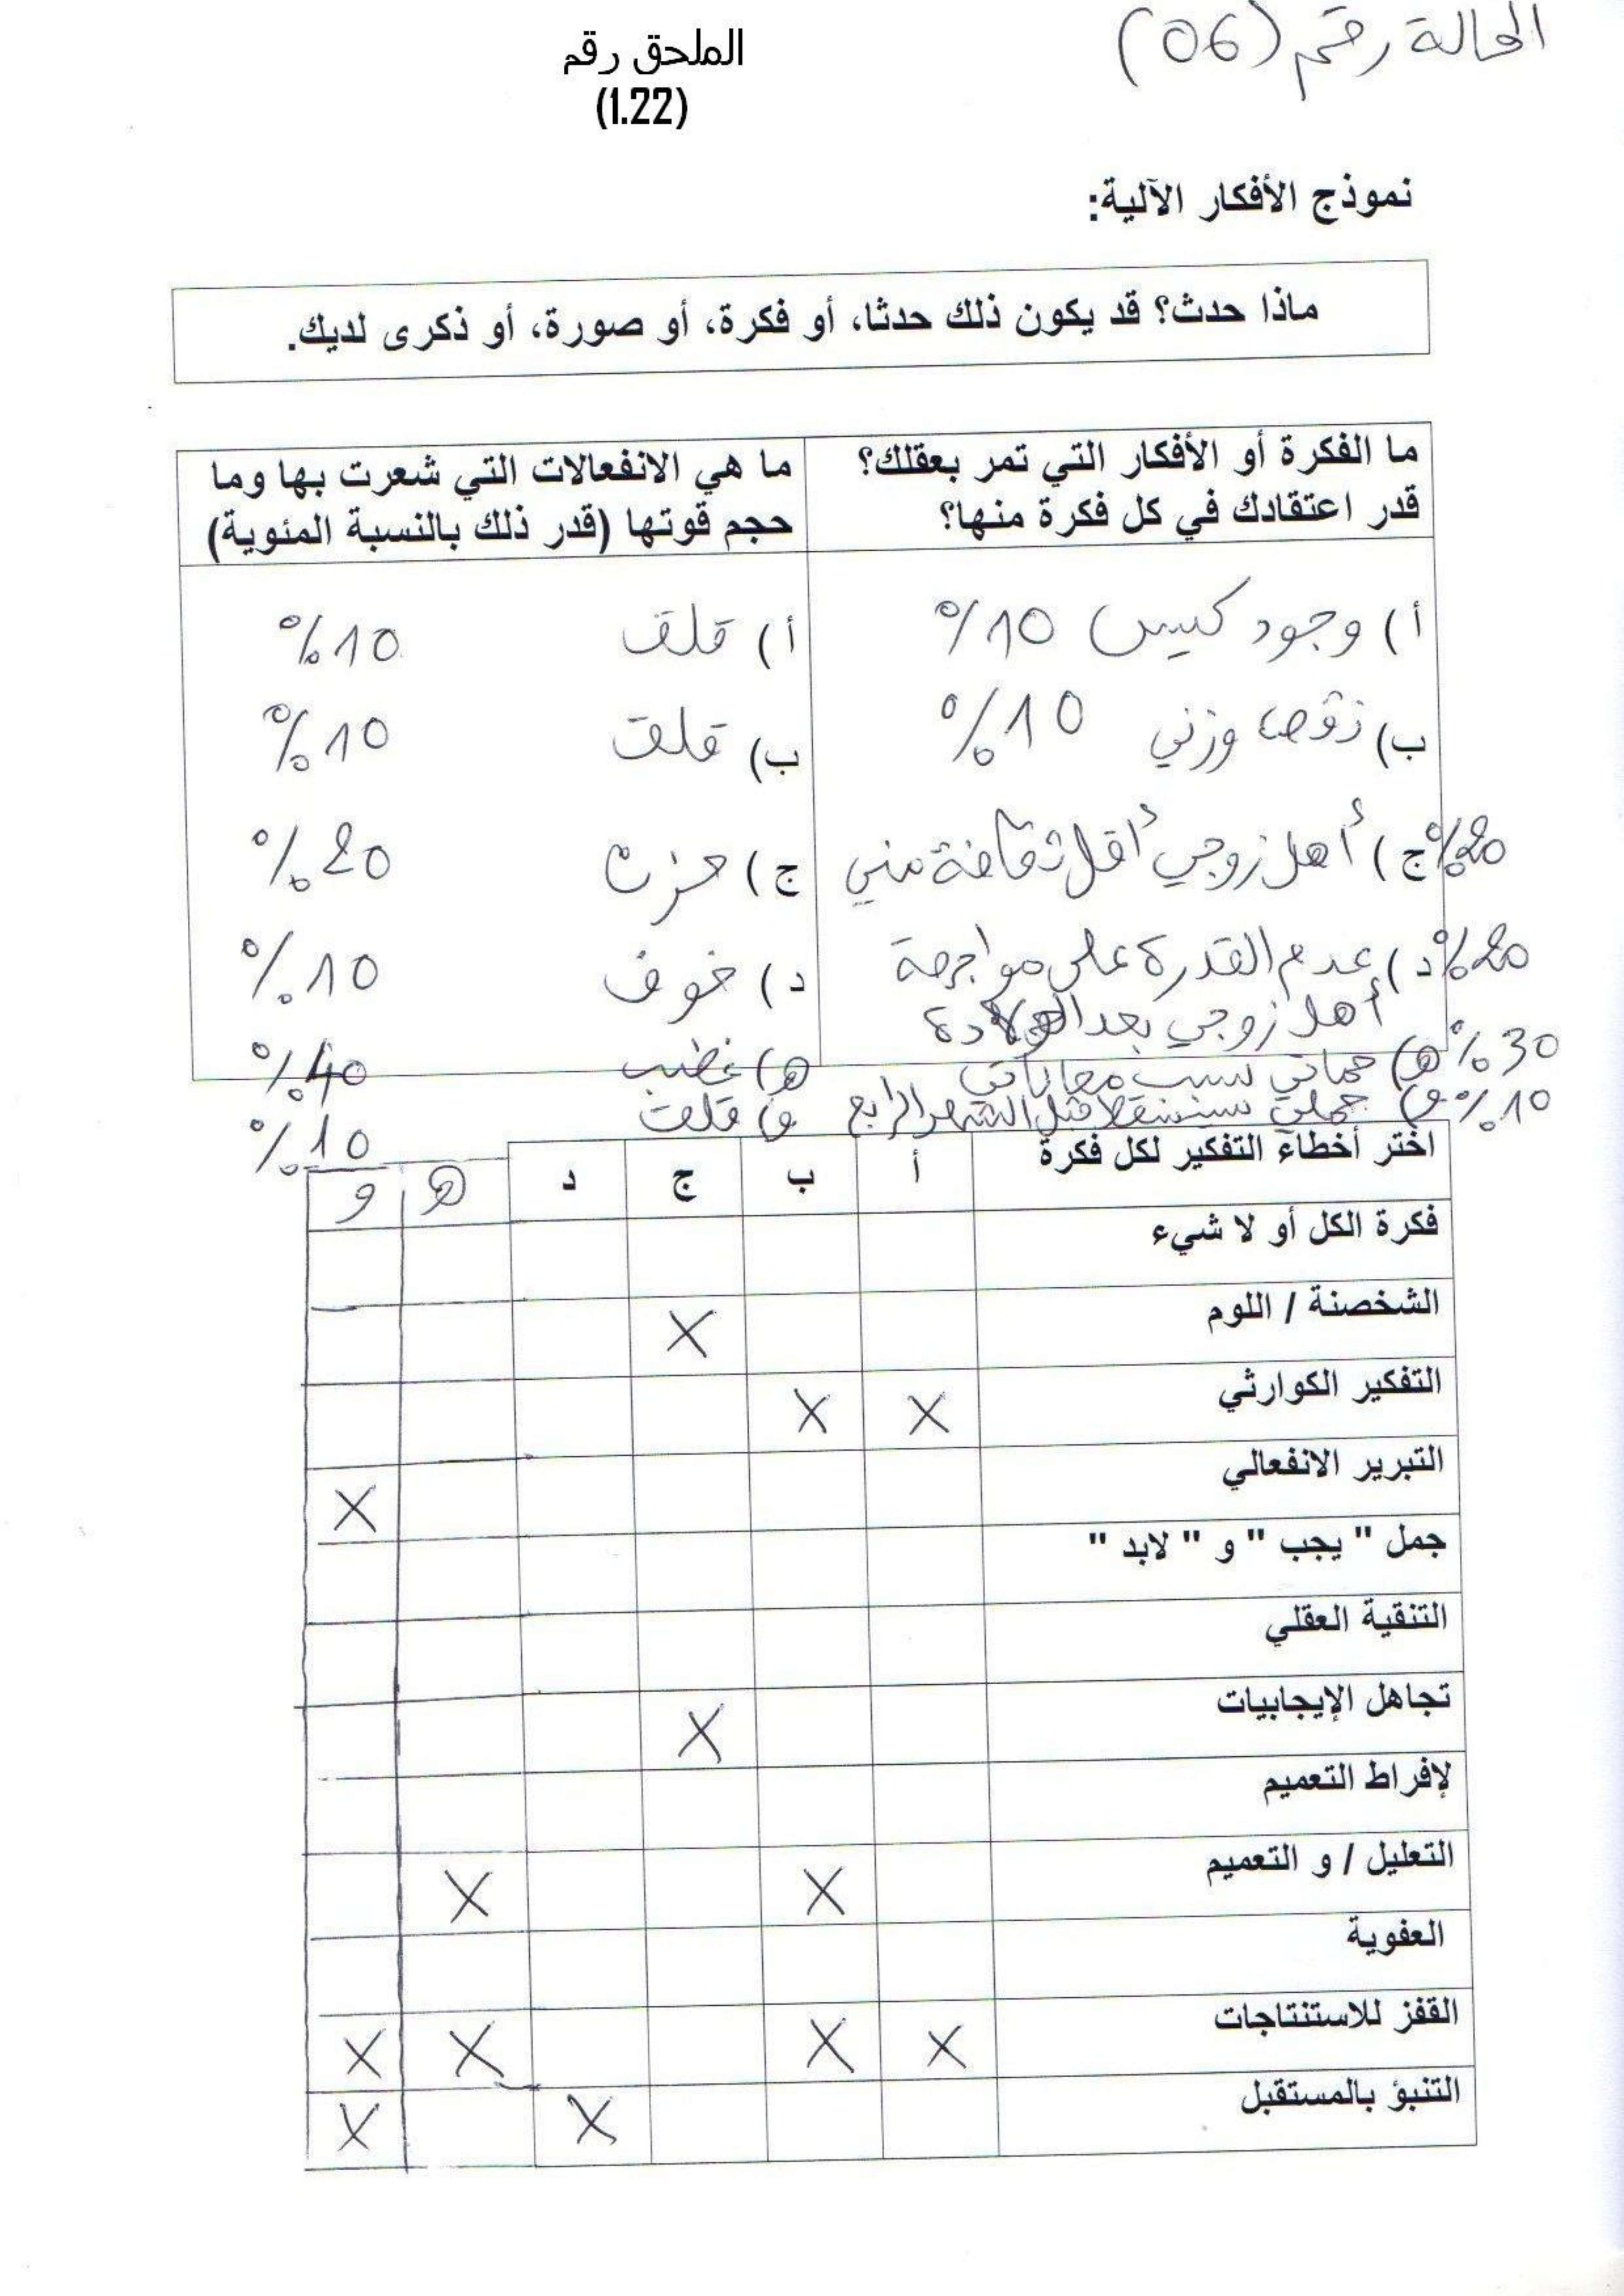 الحالة رقم (06)
الملحق رقم
(1.22)
نموذج الأفكار الآلية:
ماذا حدث؟ قد يكون ذلك حدثا، أو فكرة، أو صورة، أو ذكرى لديك.
ما الفكرة أو الأفكار التي تمر بعقلك؟
قدر اعتقادك في كل فكرة منها؟
ما هي الانفعالات التي شعرت بها وما
حجم قوتها (قدر ذلك بالنسبة المئوية)
أ) وجود كيس 10%
أ) قلق 10%
ب) نقص وزني 10%
ب) قلق 10%
ج) أهل زوجي أقل ثقافة مني 20%
ج) حزن 20%
د) عدم القدرة على مواجهة 20%
أهل زوجي بعد الولادة
د) خوف 10%
هـ) حماتي سبب معاناتي 30%
هـ) غضب 40%
و) حملي سيسقط قبل الشهر الرابع 10%
و) قلق 10%
اختر أخطاء التفكير لكل فكرة أ ب ج د هـ و
فكرة الكل أو لا شيء
الشخصنة / اللوم X
التفكير الكوارثي X X
التبرير الانفعالي X
جمل " يجب " و " لابد "
التنقية العقلي
تجاهل الإيجابيات X
لإفراط التعميم
التعليل / و التعميم X X
العفوية
القفز للاستنتاجات X X X X
التنبؤ بالمستقبل X X